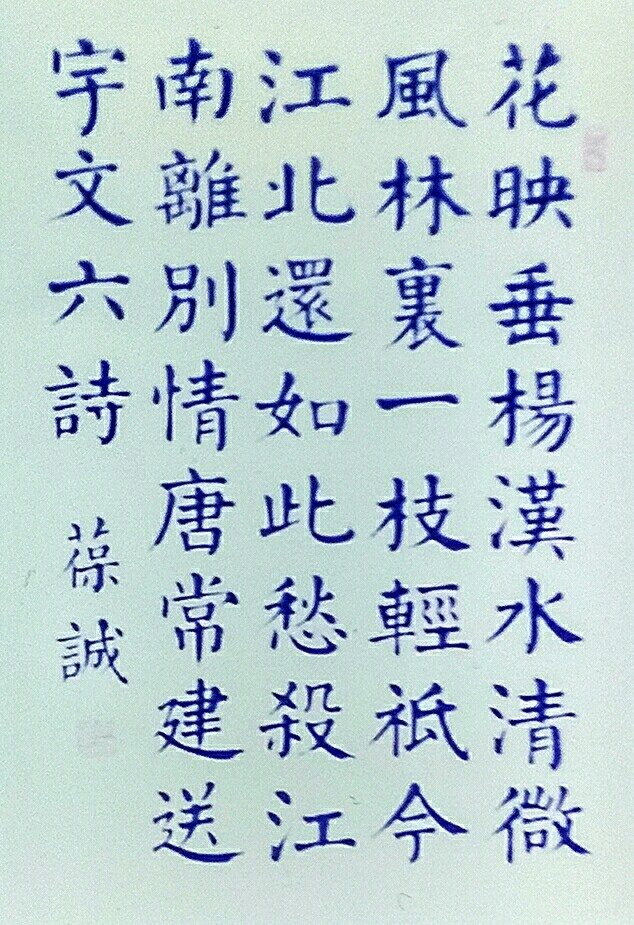 花映垂楊漢水清微
風林裏一枝輕祇今
江北還如此愁殺江
南離別情唐常建送
宇文六詩
葆誠